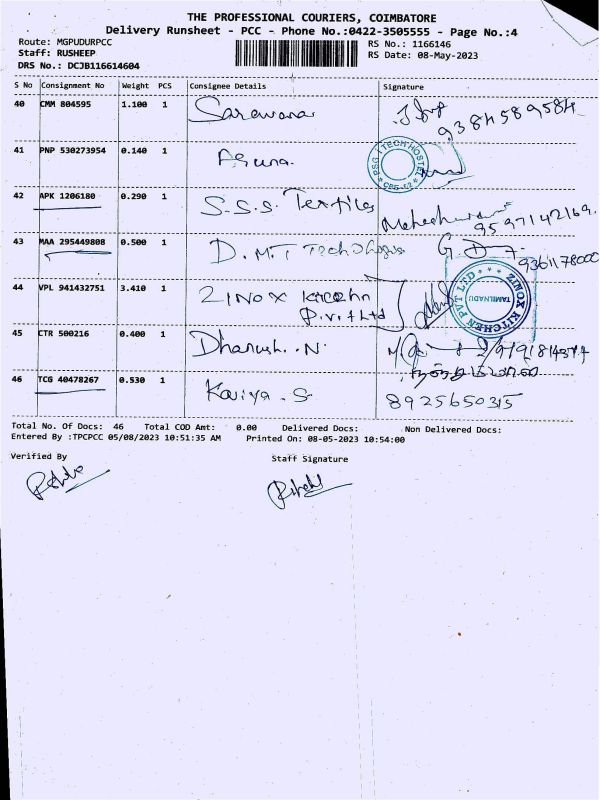 THE PROFESSIONAL COURIERS, COIMBATORE
Delivery Runsheet - PCC - Phone No.:0422-3505555 - Page No.:4
Route: MGPUDURPCC
Staff: RUSHEEP
DRS No.: DCJB116614604
RS No.: 1166146
RS Date: 08-May-2023
S No Consignment No Weight PCS Consignee Details Signature
40 CMM 804595 1.100 1 Saravana
9384589584
41 PNP 530273954 0.140 1
PSG ITECH HOSTEL
42 APK 1206180 0.290 1 S.S.S. Textiles
9597142169.
43 MAA 295449808 0.500 1 D.M.T
9361178000
44 VPL 941432751 3.410 1 ZINOX
P.vt Ltd
ZINOX KITCHEN PVT LTD
TAMILNADU
45 CTR 500216 0.400 1 Dhanush. N.
46 TCG 40478267 0.530 1 Kaviya. S 8925650315
Total No. Of Docs: 46 Total COD Amt: 0.00 Delivered Docs: Non Delivered Docs:
Entered By :TPCPCC 05/08/2023 10:51:35 AM Printed On: 08-05-2023 10:54:00
Verified By Staff Signature